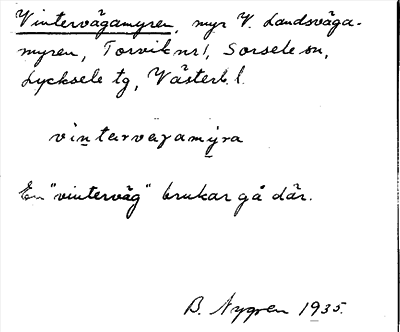 Vintervägamyren, myr V. Landsväga-
myren, Torvik nr 1, Sorsele sn,
Lycksele tg, Västerb. l.
vintarvägamyra
En "vinterväg" brukar gå där.
B. Nygren 1935.